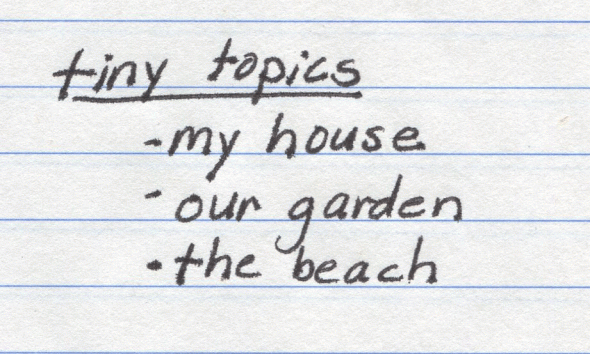 tiny topics
-my house
- our garden
- the beach